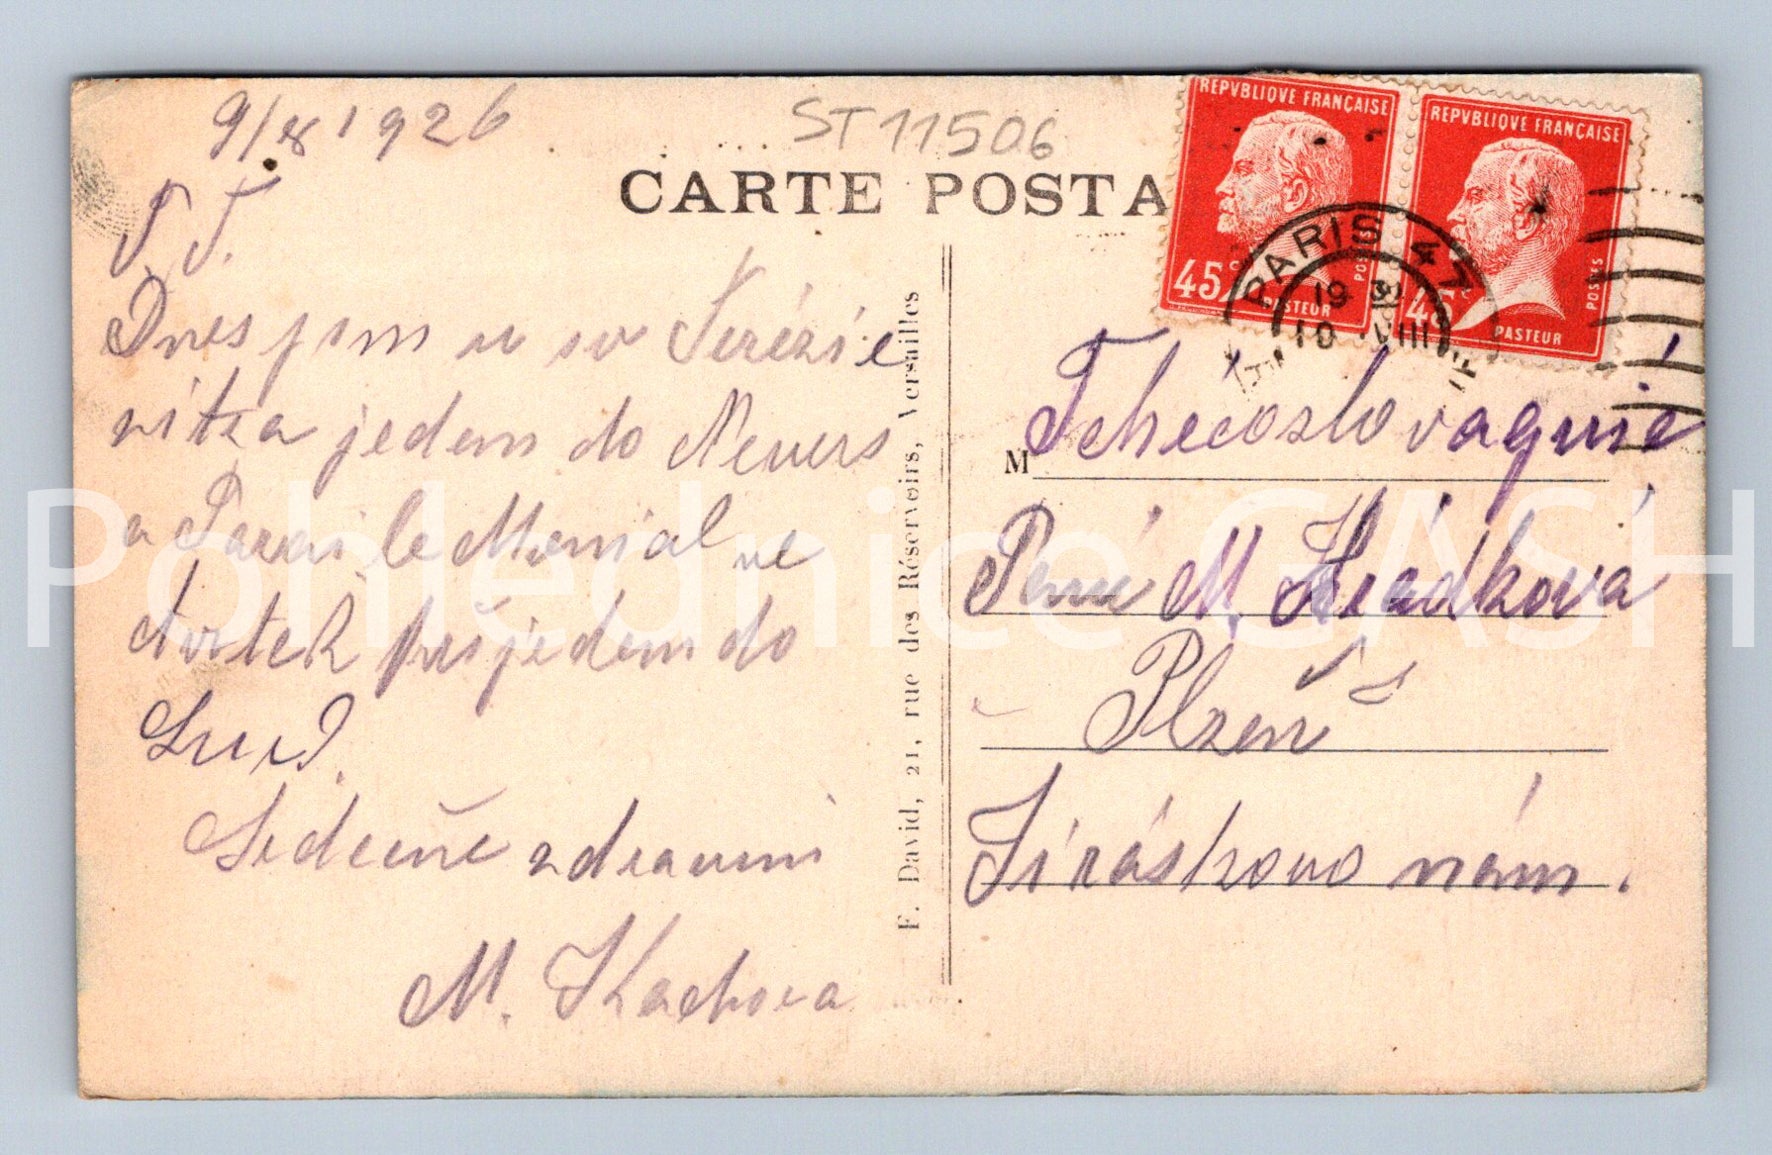 9/8 1926
ST11506
CARTE POSTA
REPVBLIQVE FRANÇAISE
45c
POSTES
PASTEUR
REPVBLIQVE FRANÇAISE
45c
POSTES
PASTEUR
PARIS 47
19 30
10 VIII
Dnes jsm u sv Terézie
zítra jedem do Nevers
a Parai le Monial ve
čtvrtek přijedem do
Srdečně zdraví
M. Kachova
F. David, 21, rue des Réservoirs, Versailles
M Tchécoslovaquié
Paní M. Hrádková
Plzeň
Jiráskovo nám.
Pohlednice GASH